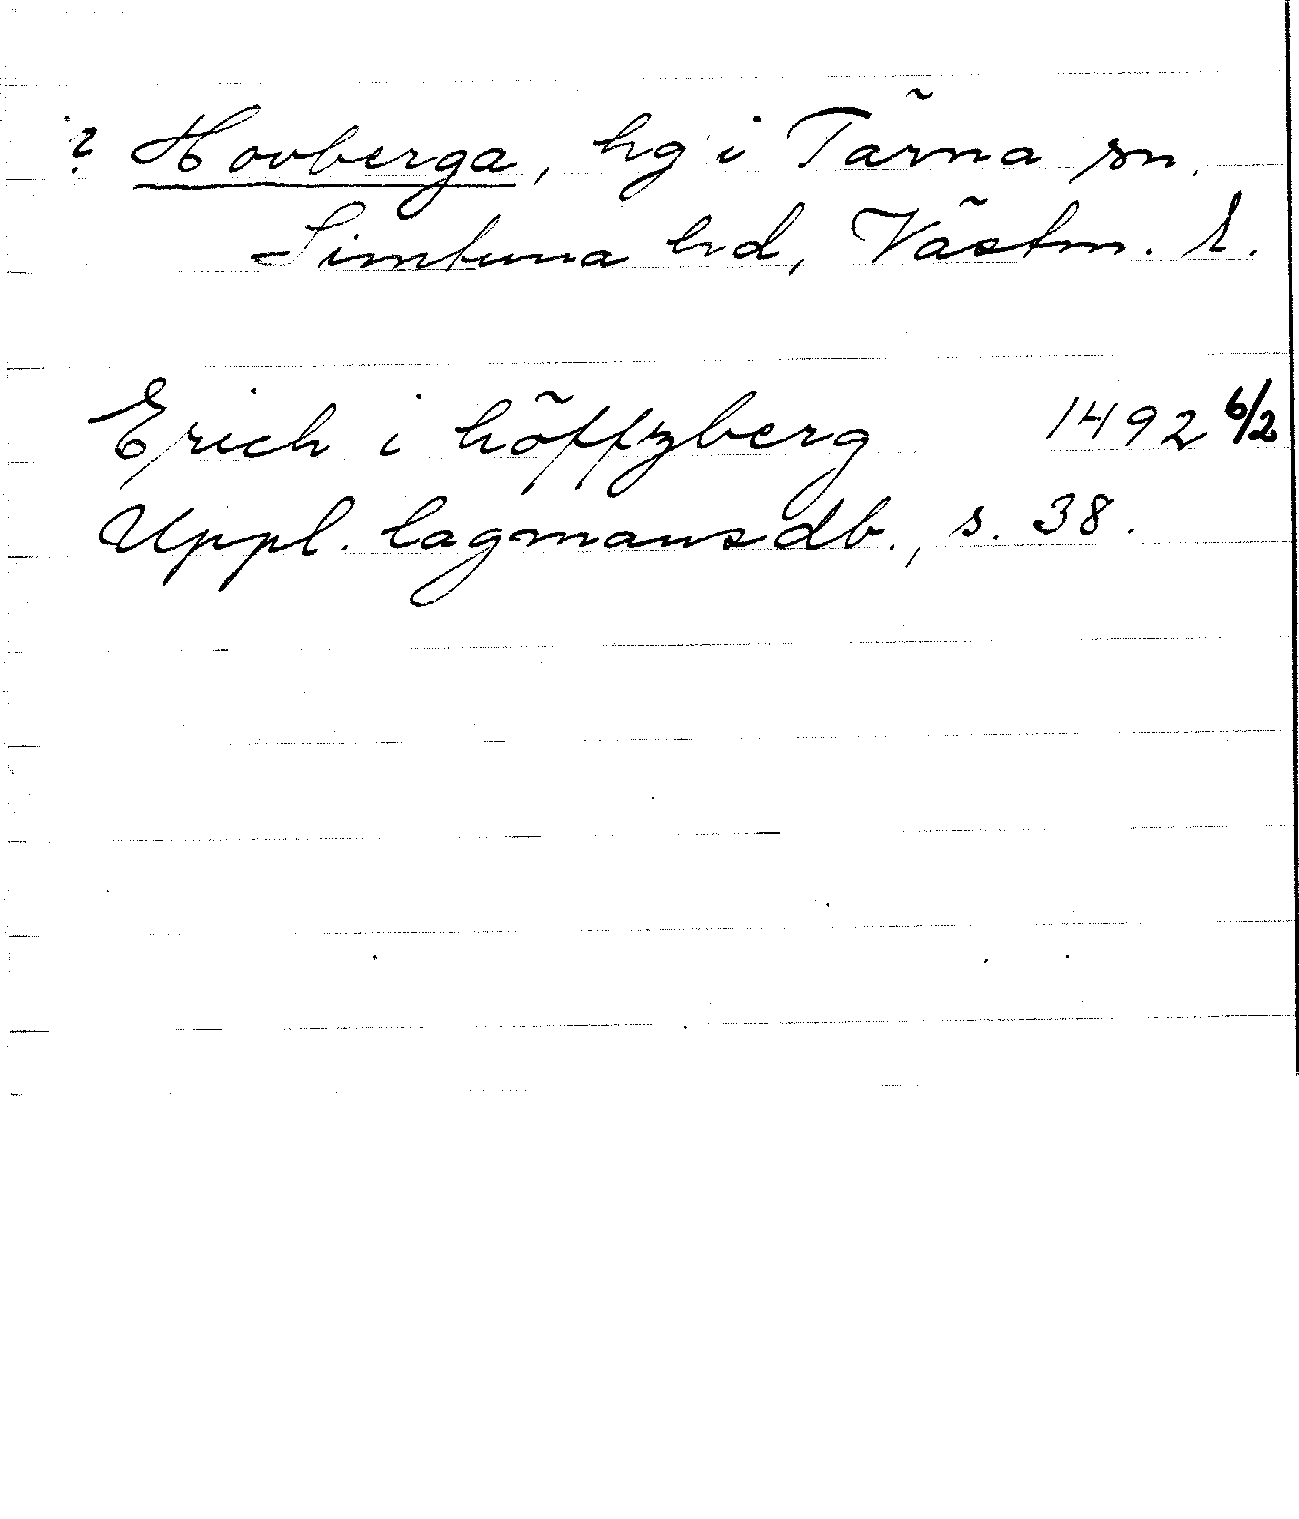 ? Hovberga, hg i Tärna sn.
Simtuna hd, Västm. l.
Erich i höffzberg 1492 6/2
Uppl. lagmansdb., s. 38.